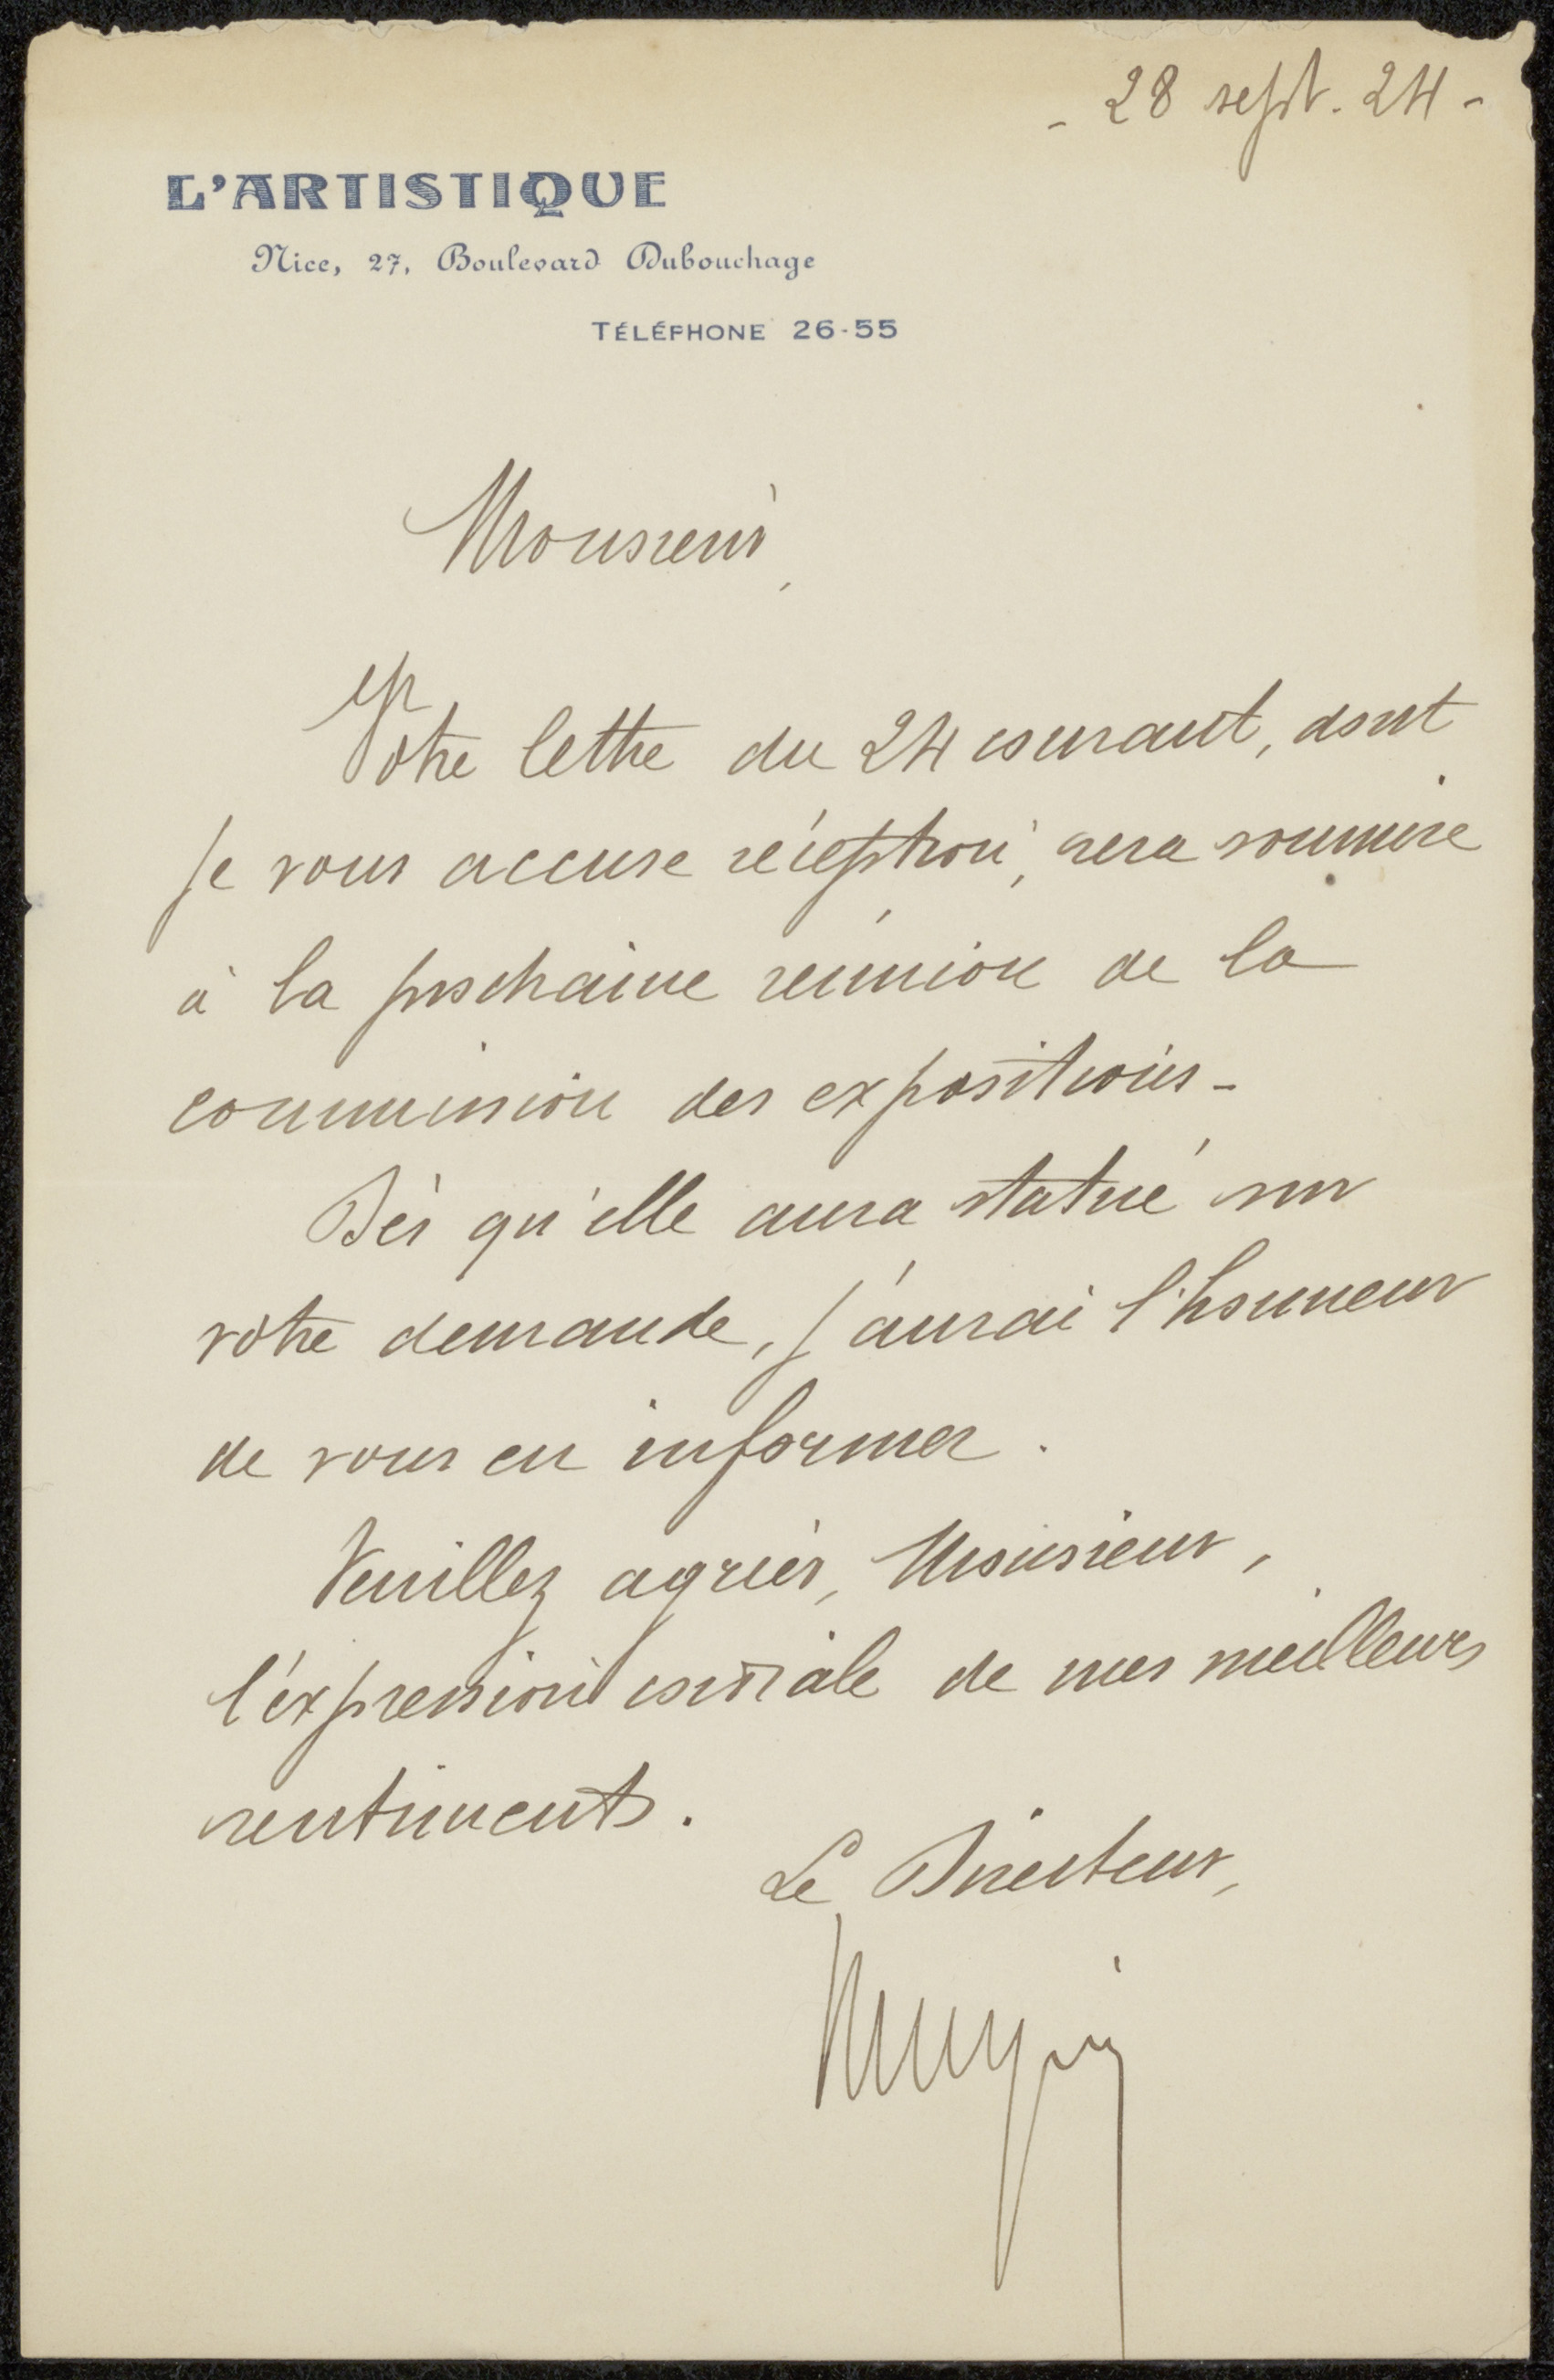 - 28 sept. 24 -
L'ARTISTIQUE
Nice, 27, Boulevard Dubouchage
TÉLÉPHONE 26-55
Monsieur,
Votre lettre du 24 courant, dont
je vous accuse réception, sera soumise
à la prochaine réunion de la
commission des expositions -
Dès qu'elle aura statué sur
votre demande, j'aurai l'honneur
de vous en informer.
Veuillez agréer, Monsieur,
l'expression cordiale de mes meilleurs
sentiments.
Le Directeur,